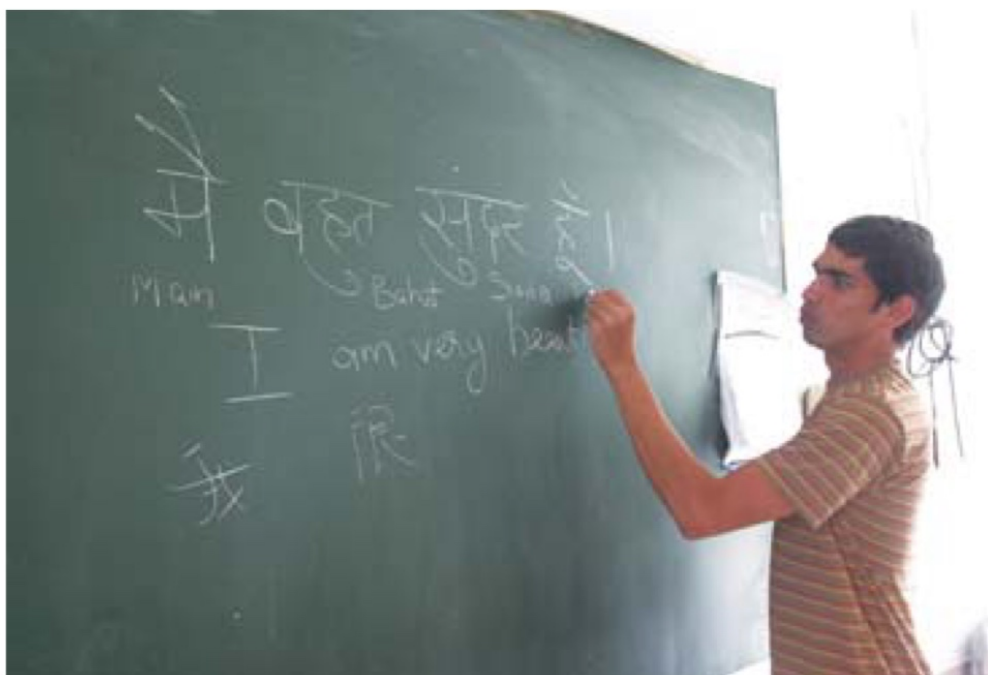 मैं बहुत सुंदर हूँ।
Main Bahut
I am very beaut